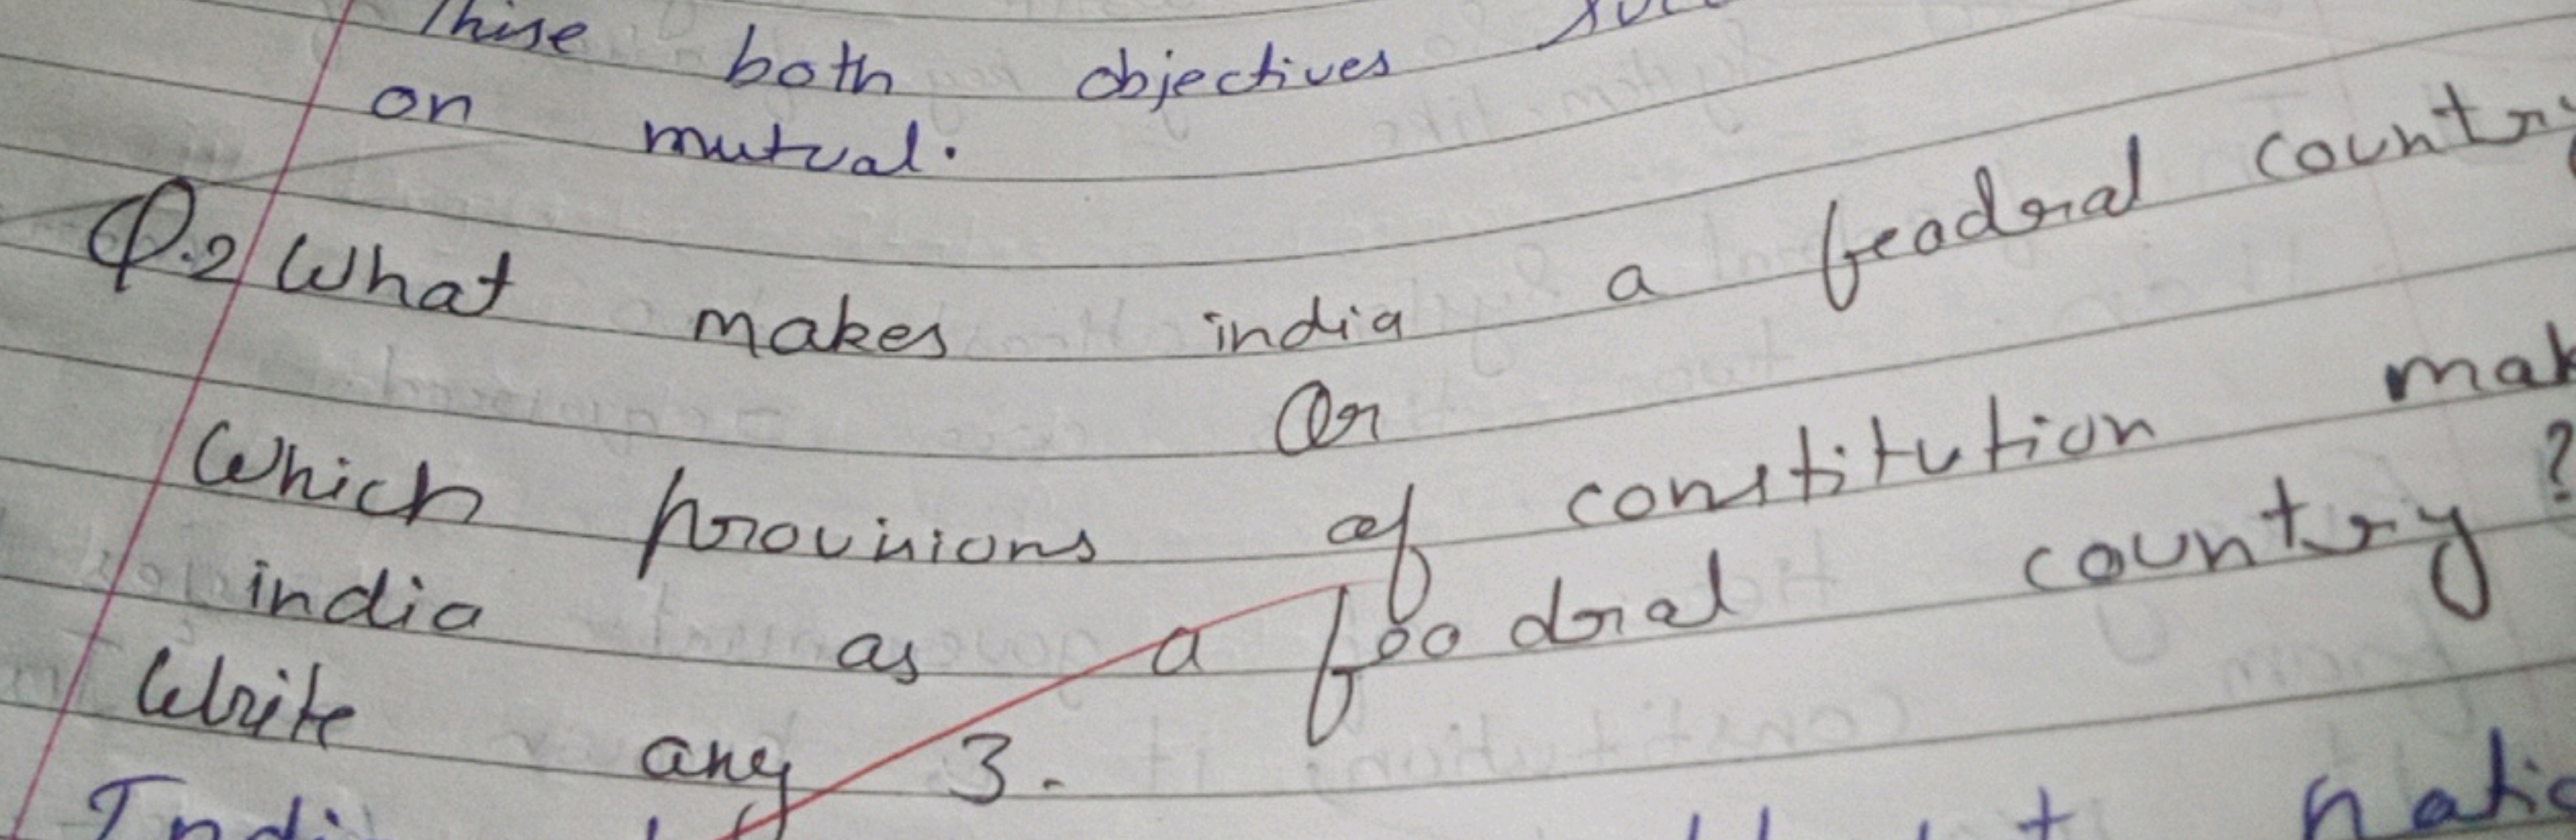 These both objectives
on mutual.
Q.2 What makes india a feadral country
Or
Which provisions of constitution mak
india as a feadral country?
Write any 3.